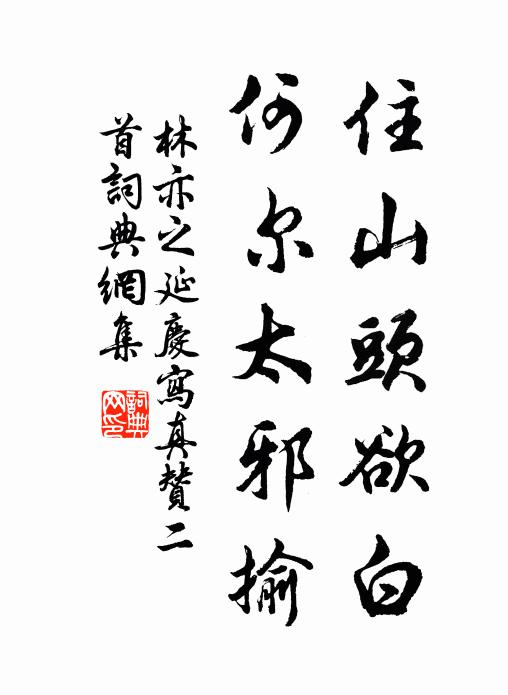 住山頭欲白
何尔太邪揄
林亦之延慶寫真贊二
首詞典網集
詞典
网印